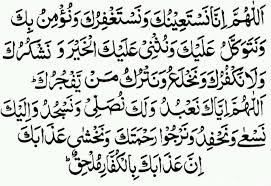 اَللّٰهُمَّ اِنَّا نَسْتَعِيْنُكَ وَنَسْتَغْفِرُكَ وَنُؤْمِنُ بِكَ
وَنَتَوَكَّلُ عَلَيْكَ وَنُثْنِيْ عَلَيْكَ الْخَيْرَ وَ نَشْكُرُكَ
وَلَا نَكْفُرُكَ وَنَخْلَعُ وَنَتْرُكُ مَنْ يَّفْجُرُكَ
اَللّٰهُمَّ اِيَّاكَ نَعْبُدُ وَلَكَ نُصَلِّيْ وَنَسْجُدُ وَاِلَيْكَ
نَسْعٰى وَنَحْفِدُ وَنَرْجُوْا رَحْمَتَكَ وَنَخْشٰى عَذَابَكَ
اِنَّ عَذَابَكَ بِالْكُفَّارِ مُلْحِقٌ